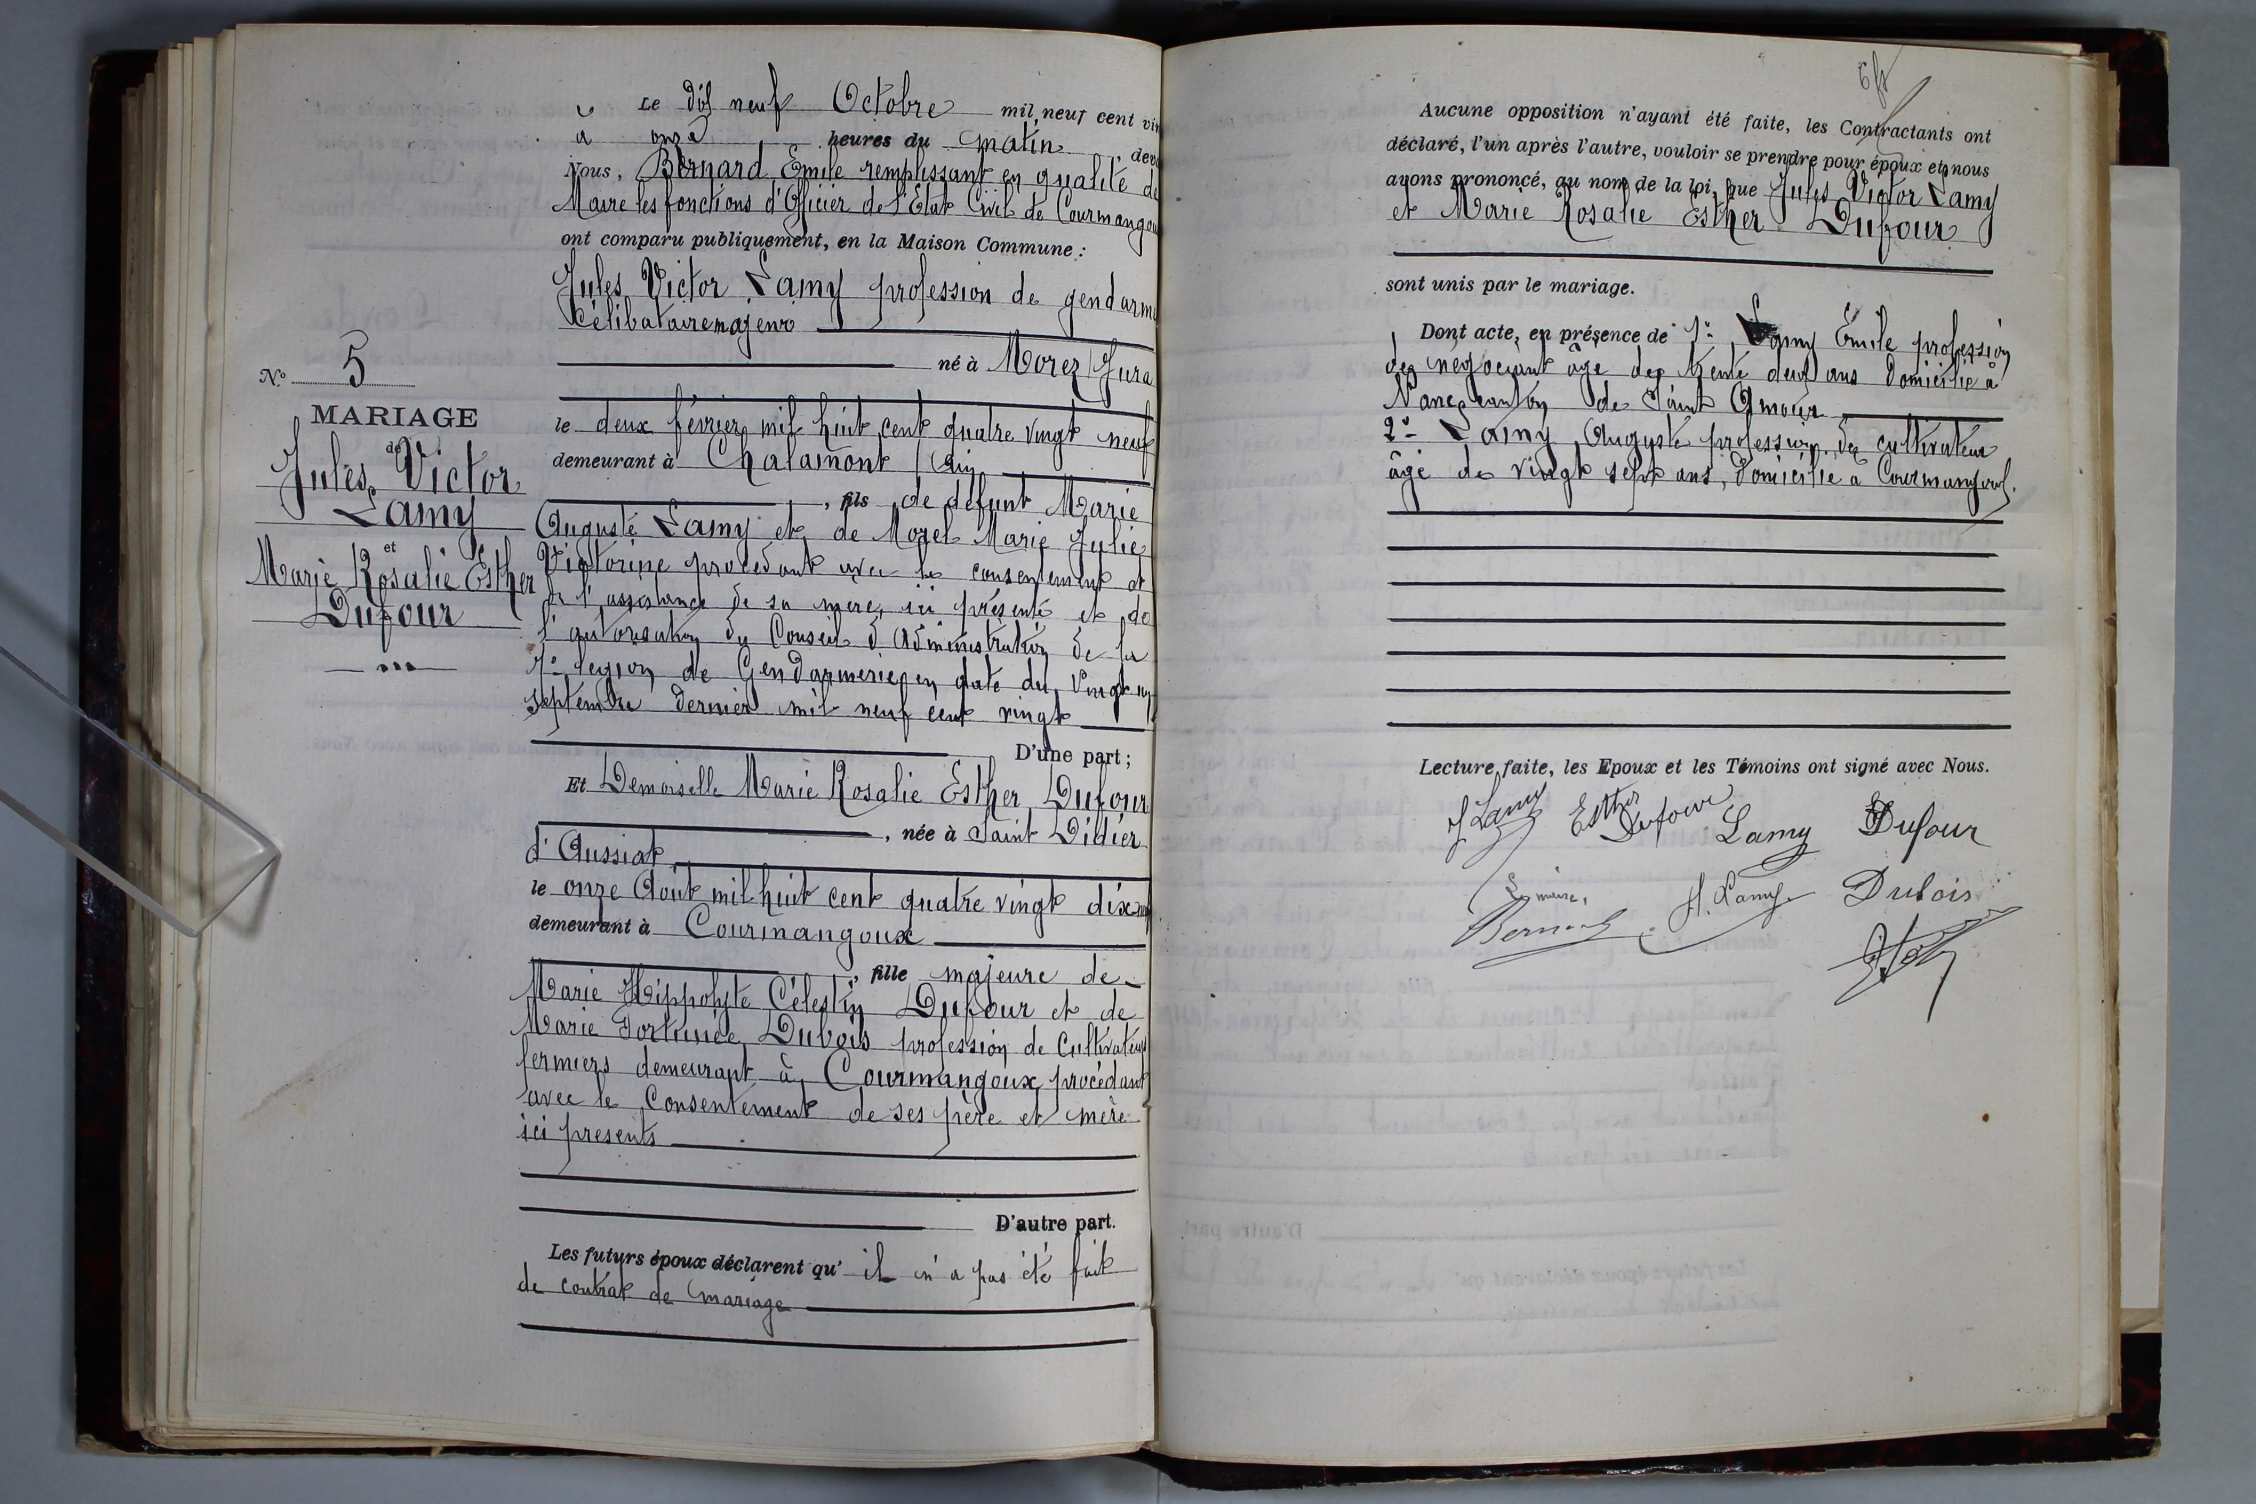 Le dix neuf Octobre mil neuf cent vin
à onze heures du matin, deva
Nous, Bernard Emile remplissant en qualité de
Maire les fonctions d'Officier de l'Etat Civil de Courmangou
ont comparu publiquement, en la Maison Commune :
Jules Victor Lamy profession de gendarme
Célibataire majeur
né à Morez Jura
le deux février mil huit cent quatre vingt neuf
demeurant à Chalamont (Ain
, fils de défunt Marie
Auguste Lamy et de Morel Marie Julie
Victorine procédant avec le consentement et
de l'assistance de sa mère, ici présente et de
l'autorisation du Conseil d'Administration de la
7e légion de Gendarmerie en date du Vingt
septembre dernier mil neuf cent vingt
D'une part ;
Et Demoiselle Marie Rosalie Esther Dufour
, née à Saint Didier
d'Aussiat
le onze Août mil huit cent quatre vingt dix
demeurant à Courmangoux
, fille majeure de
Marie Hippolyte Célestin Dufour et de
Marie Fortunée Dubois profession de Cultivateurs
fermiers demeurant à Courmangoux procédant
avec le Consentement de ses père et mère
ici présents
D'autre part.
Les futurs époux déclarent qu'il n'a pas été fait
de contrat de mariage
No 5
MARIAGE
de
Jules Victor
Lamy
et
Marie Rosalie Esther
Dufour
Aucune opposition n'ayant été faite, les Contractants ont
déclaré, l'un après l'autre, vouloir se prendre pour époux et nous
avons prononcé, au nom de la loi, que Jules Victor Lamy
et Marie Rosalie Esther Dufour
sont unis par le mariage.
Dont acte, en présence de 1o Lamy Emile profession
de négociant âgé de trente deux ans domicilié à
Nanc canton de Saint Amour
2o Lamy Auguste profession de cultivateur
âgé de vingt sept ans, domicilié à Courmangoux.
Lecture faite, les Epoux et les Témoins ont signé avec Nous.
J Lamy Esther Dufour Lamy Dufour
Le maire,
Bernard
Lamy
Dubois